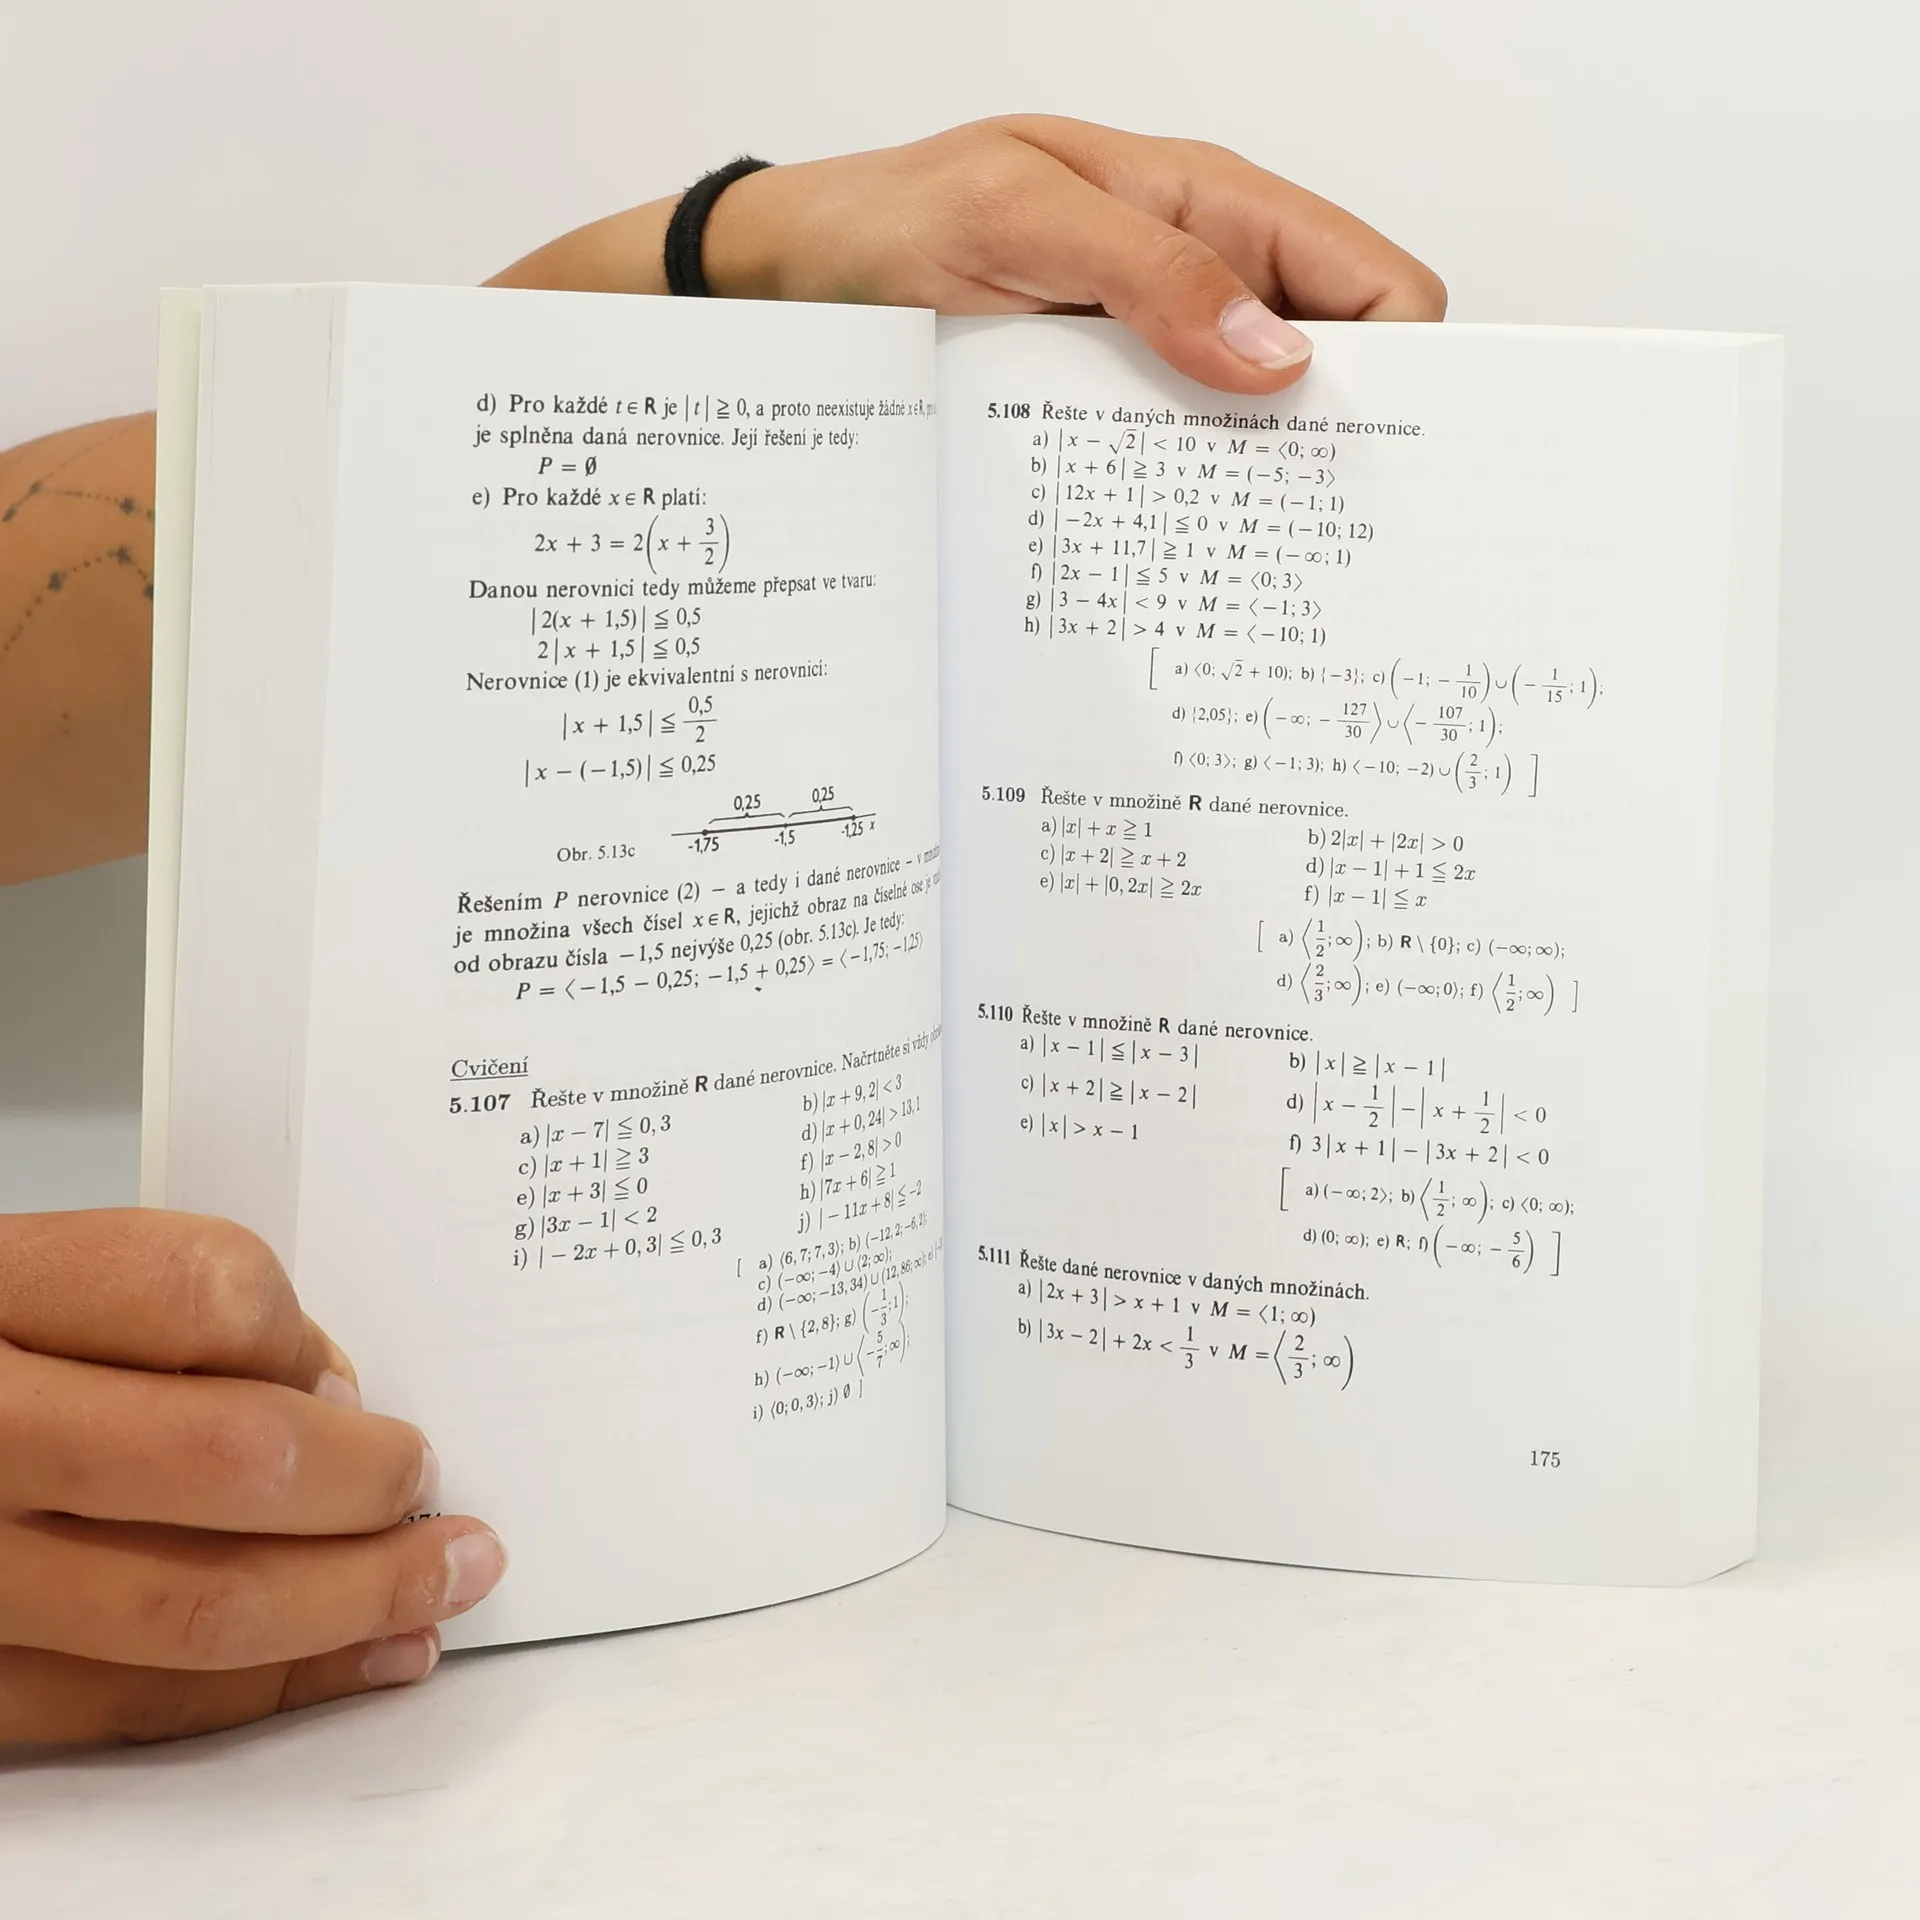 d) Pro každé t ∈ R je |t| ≧ 0, a proto neexistuje žádné x ∈ R,
je splněna daná nerovnice. Její řešení je tedy:
P = ∅
e) Pro každé x ∈ R platí:
2x + 3 = 2(x + 3/2)
Danou nerovnici tedy můžeme přepsat ve tvaru:
|2(x + 1,5)| ≦ 0,5
2|x + 1,5| ≦ 0,5
Nerovnice (1) je ekvivalentní s nerovnicí:
|x + 1,5| ≦ 0,5/2
|x − (−1,5)| ≦ 0,25
0,25 0,25
-1,75 -1,5 -1,25 x
Obr. 5.13c
Řešením P nerovnice (2) − a tedy i dané nerovnice − v
je množina všech čísel x ∈ R, jejichž obraz na číselné ose je
od obrazu čísla −1,5 nejvýše 0,25 (obr. 5.13c). Je tedy:
P = ⟨−1,5 − 0,25; −1,5 + 0,25⟩ = ⟨−1,75; −1,25⟩
Cvičení
5.107 Řešte v množině R dané nerovnice. Načrtněte si vždy
a) |x − 7| ≦ 0,3 b) |x + 9,2| < 3
c) |x + 1| ≧ 3 d) |x + 0,24| > 13,1
e) |x + 3| ≦ 0 f) |x − 2,8| > 0
g) |3x − 1| < 2 h) |7x + 6| ≧ 1
i) |− 2x + 0,3| ≦ 0,3 j) |− 11x + 8| ≦ −2
[ a) ⟨6,7; 7,3⟩; b) (−12,2; −6,2);
c) (−∞; −4⟩ ∪ ⟨2; ∞);
d) (−∞; −13,34) ∪ (12,86; ∞); e)
f) R \ {2,8}; g) (−1/3; 1);
h) (−∞; −1⟩ ∪ ⟨−5/7; ∞);
i) ⟨0; 0,3⟩; j) ∅ ]
5.108 Řešte v daných množinách dané nerovnice.
a) |x − √2| < 10 v M = ⟨0; ∞)
b) |x + 6| ≧ 3 v M = (−5; −3⟩
c) |12x + 1| > 0,2 v M = (−1; 1)
d) |−2x + 4,1| ≦ 0 v M = (−10; 12)
e) |3x + 11,7| ≧ 1 v M = (−∞; 1)
f) |2x − 1| ≦ 5 v M = ⟨0; 3⟩
g) |3 − 4x| < 9 v M = ⟨−1; 3⟩
h) |3x + 2| > 4 v M = ⟨−10; 1)
[ a) ⟨0; √2 + 10); b) {−3}; c) (−1; −1/10) ∪ (−1/15; 1);
d) {2,05}; e) (−∞; −127/30⟩ ∪ ⟨−107/30; 1);
f) ⟨0; 3⟩; g) ⟨−1; 3); h) ⟨−10; −2) ∪ (2/3; 1) ]
5.109 Řešte v množině R dané nerovnice.
a) |x| + x ≧ 1 b) 2|x| + |2x| > 0
c) |x + 2| ≧ x + 2 d) |x − 1| + 1 ≦ 2x
e) |x| + |0,2x| ≧ 2x f) |x − 1| ≦ x
[ a) ⟨1/2; ∞); b) R \ {0}; c) (−∞; ∞);
d) ⟨2/3; ∞); e) (−∞; 0⟩; f) ⟨1/2; ∞) ]
5.110 Řešte v množině R dané nerovnice.
a) |x − 1| ≦ |x − 3| b) |x| ≧ |x − 1|
c) |x + 2| ≧ |x − 2| d) |x − 1/2| − |x + 1/2| < 0
e) |x| > x − 1 f) 3|x + 1| − |3x + 2| < 0
[ a) (−∞; 2⟩; b) ⟨1/2; ∞); c) ⟨0; ∞);
d) (0; ∞); e) R; f) (−∞; −5/6) ]
5.111 Řešte dané nerovnice v daných množinách.
a) |2x + 3| > x + 1 v M = ⟨1; ∞)
b) |3x − 2| + 2x < 1/3 v M = ⟨2/3; ∞)
175